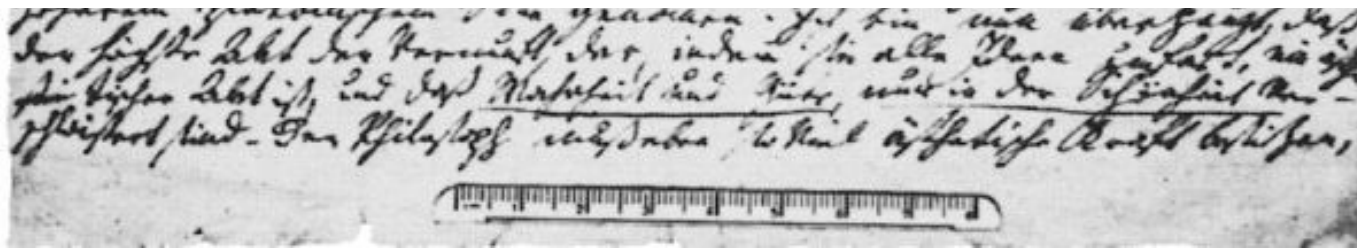 höherem platonischem Sinn genomen. Ich bin nun überzeugt, daß
der höchste Akt der Vernunft, der, indem sie alle Ideen umfast, ein ästhe
tischer Akt ist, und daß Wahrheit und Güte, nur in der Schönheit ver-
schwistert sind - Der Philosoph muß eben so viel ästhetische Kraft besitzen,